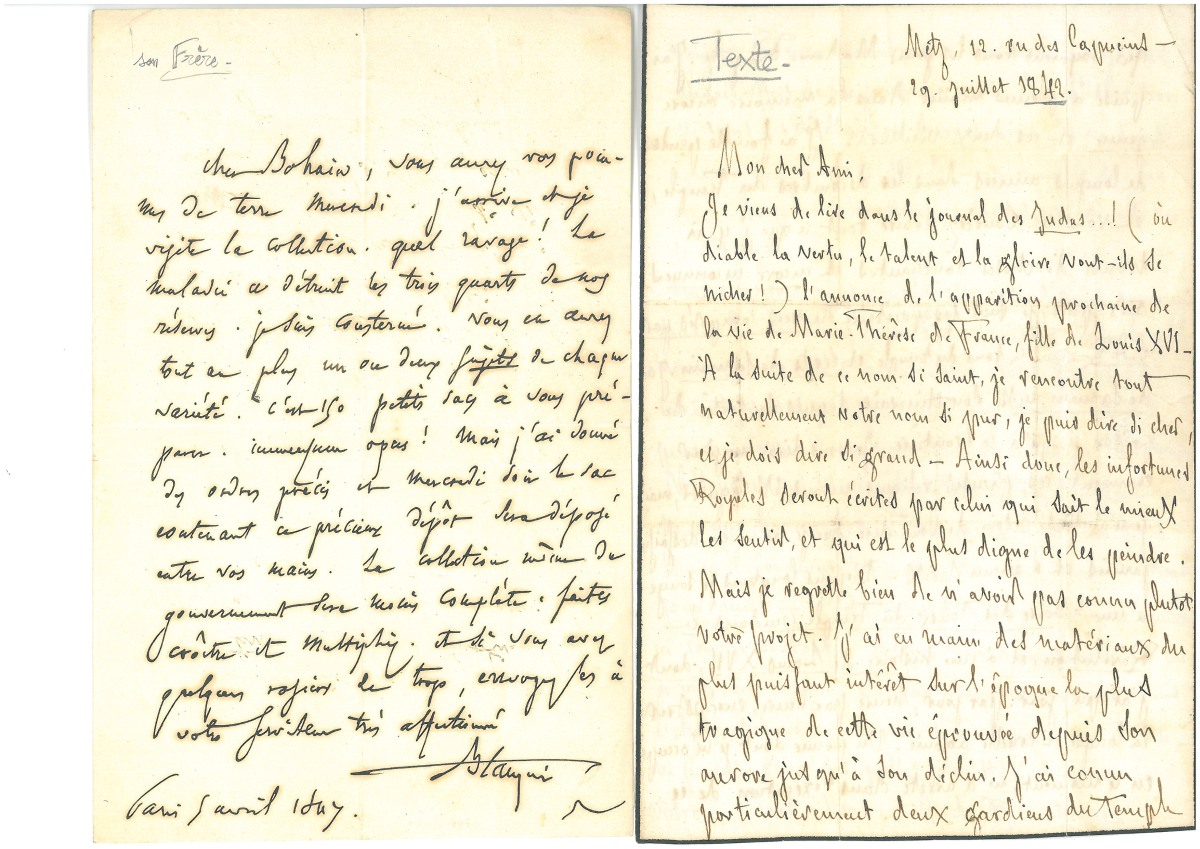 son Frère.
cher Bohain, vous aurez vos pom-
mes de terre mercredi. j'arrive et je
visite la collection. quel ravage! La
maladie a détruit les trois quarts de nos
réserves. je suis consterné. Vous en aurez
tout au plus un ou deux sujets de chaque
variété. c'est 150 petits sacs à vous pré-
parer. immensum opus! Mais j'ai donné
des ordres précis et mercredi soir le sac
contenant ce précieux dépôt sera déposé
entre vos mains. La collection même du
gouvernement sera moins complète. faites
croître et multipliez. et si vous avez
quelques rosiers de trop, envoyez les à
votre serviteur très affectionné
Blanqui
Paris 5 avril 1847.
Texte.
Metz, 12. ru des Capucins —
29. Juillet 1842.
Mon cher Ami,
Je viens de lire dans le journal des Judas...! (où
diable la vertu, le talent et la gloire vont-ils se
nicher!) l'annonce de l'apparition prochaine de
la vie de Marie-Thérèse de France, fille de Louis XVI —
À la suite de ce nom si saint, je rencontre tout
naturellement votre nom si pur, je puis dire si cher,
et je dois dire si grand — Ainsi donc, les infortunes
Royales seront écrites par celui qui sait le mieux
les sentir, et qui est le plus digne de les peindre.
Mais je regrette bien de n'avoir pas connu plutot
votre projet. J'ai en main des matériaux du
plus puissant intérêt sur l'époque la plus
tragique de cette vie éprouvée depuis son
aurore jusqu'à son déclin. J'ai connu
particulièrement deux gardiens du Temple